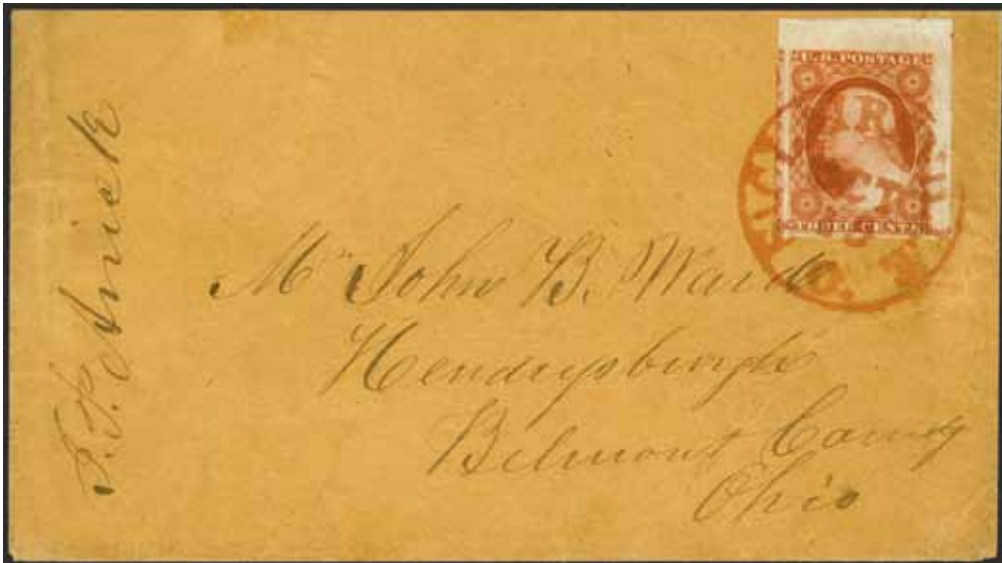 U.S. POSTAGE
THREE CENTS
Mr. John B. Ward
Hendrysburgh
Belmont County
Ohio